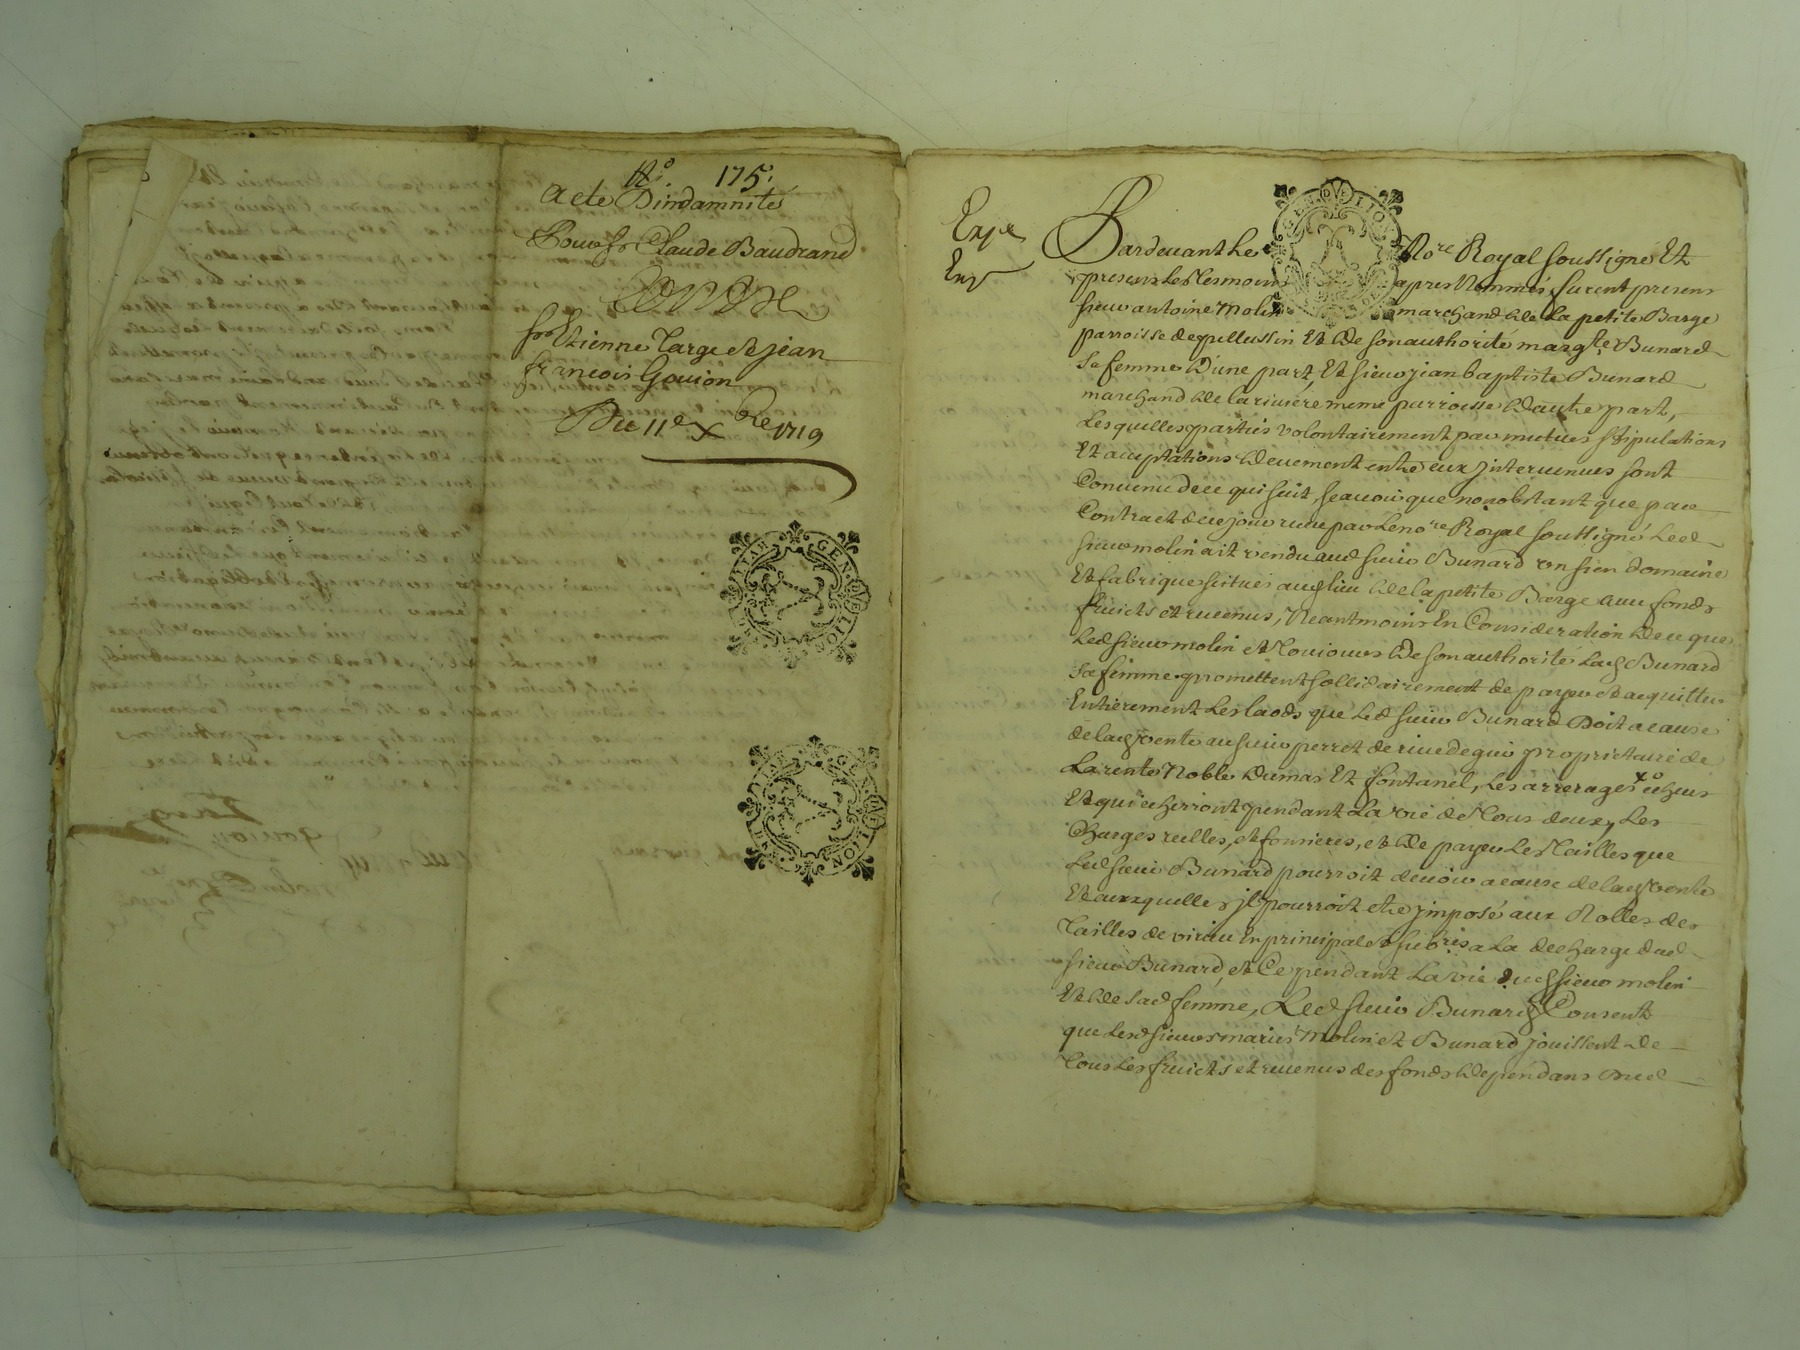 N.° 175.
Acte Dindamnités
Pour Sr Claude Baudrand
Contre
Sr Etienne Targe et jean
françois Goujon
Du 11e Xbre 1719
GEN. DE LION
Expé
Pardevant Le Nore Royal soussigné Et
presens Les tesmoins apres Nommés furent presens
sieur antoine Molin marchand de La petite Barge
parroisse de pellussin Et De son authorité margte Bunard
sa femme D'une part, Et sieur jean baptiste Bunard
marchand de la riviere meme parroisse D'autre part,
Lesquelles parties volontairement par mutues stipulations
Et acceptations Deuement entre eux jnteruenues sont
Conuenu de ce qui suit, scauoir que nonobstant que par
Contract de ce jour receu par Le nore Royal soussigné Led
sieur molin ait vendu aud sieur Bunard un sien domaine
Et fabriques situés aud lieu de la petite Barge auec fonds
fruicts et reuenus, Neantmoins En Consideration de ce que
Led sieur molin et toujours De son authorité Lad Bunard
sa femme promettent sollidairement de payer et acquitter
Entierement Les laods que Led sieur Bunard Doit a cause
de lad vente au sieur perret de riuedegier proprietaire de
La rente Noble dumas Et fontanel, Les arrerages echeus
Et qui echerront pendant La vie de tous deux, Les
Charges reelles, et fonsieres, et De payer Les tailles que
Led sieur Bunard pourroit deuoir a cause de lad vente
Et auxquelles jl pourroit etre jmposé aux Rolles des
Tailles de virieu En principal et a La decharge dud
sieur Bunard, et Ce pendant La vie dud sieur molin
Et De sad femme, Led sieur Bunard Consent
que Lesd sieurs mariés Molin et Bunard jouissent de
Tous Les fruicts et reuenus des fonds dependans dud